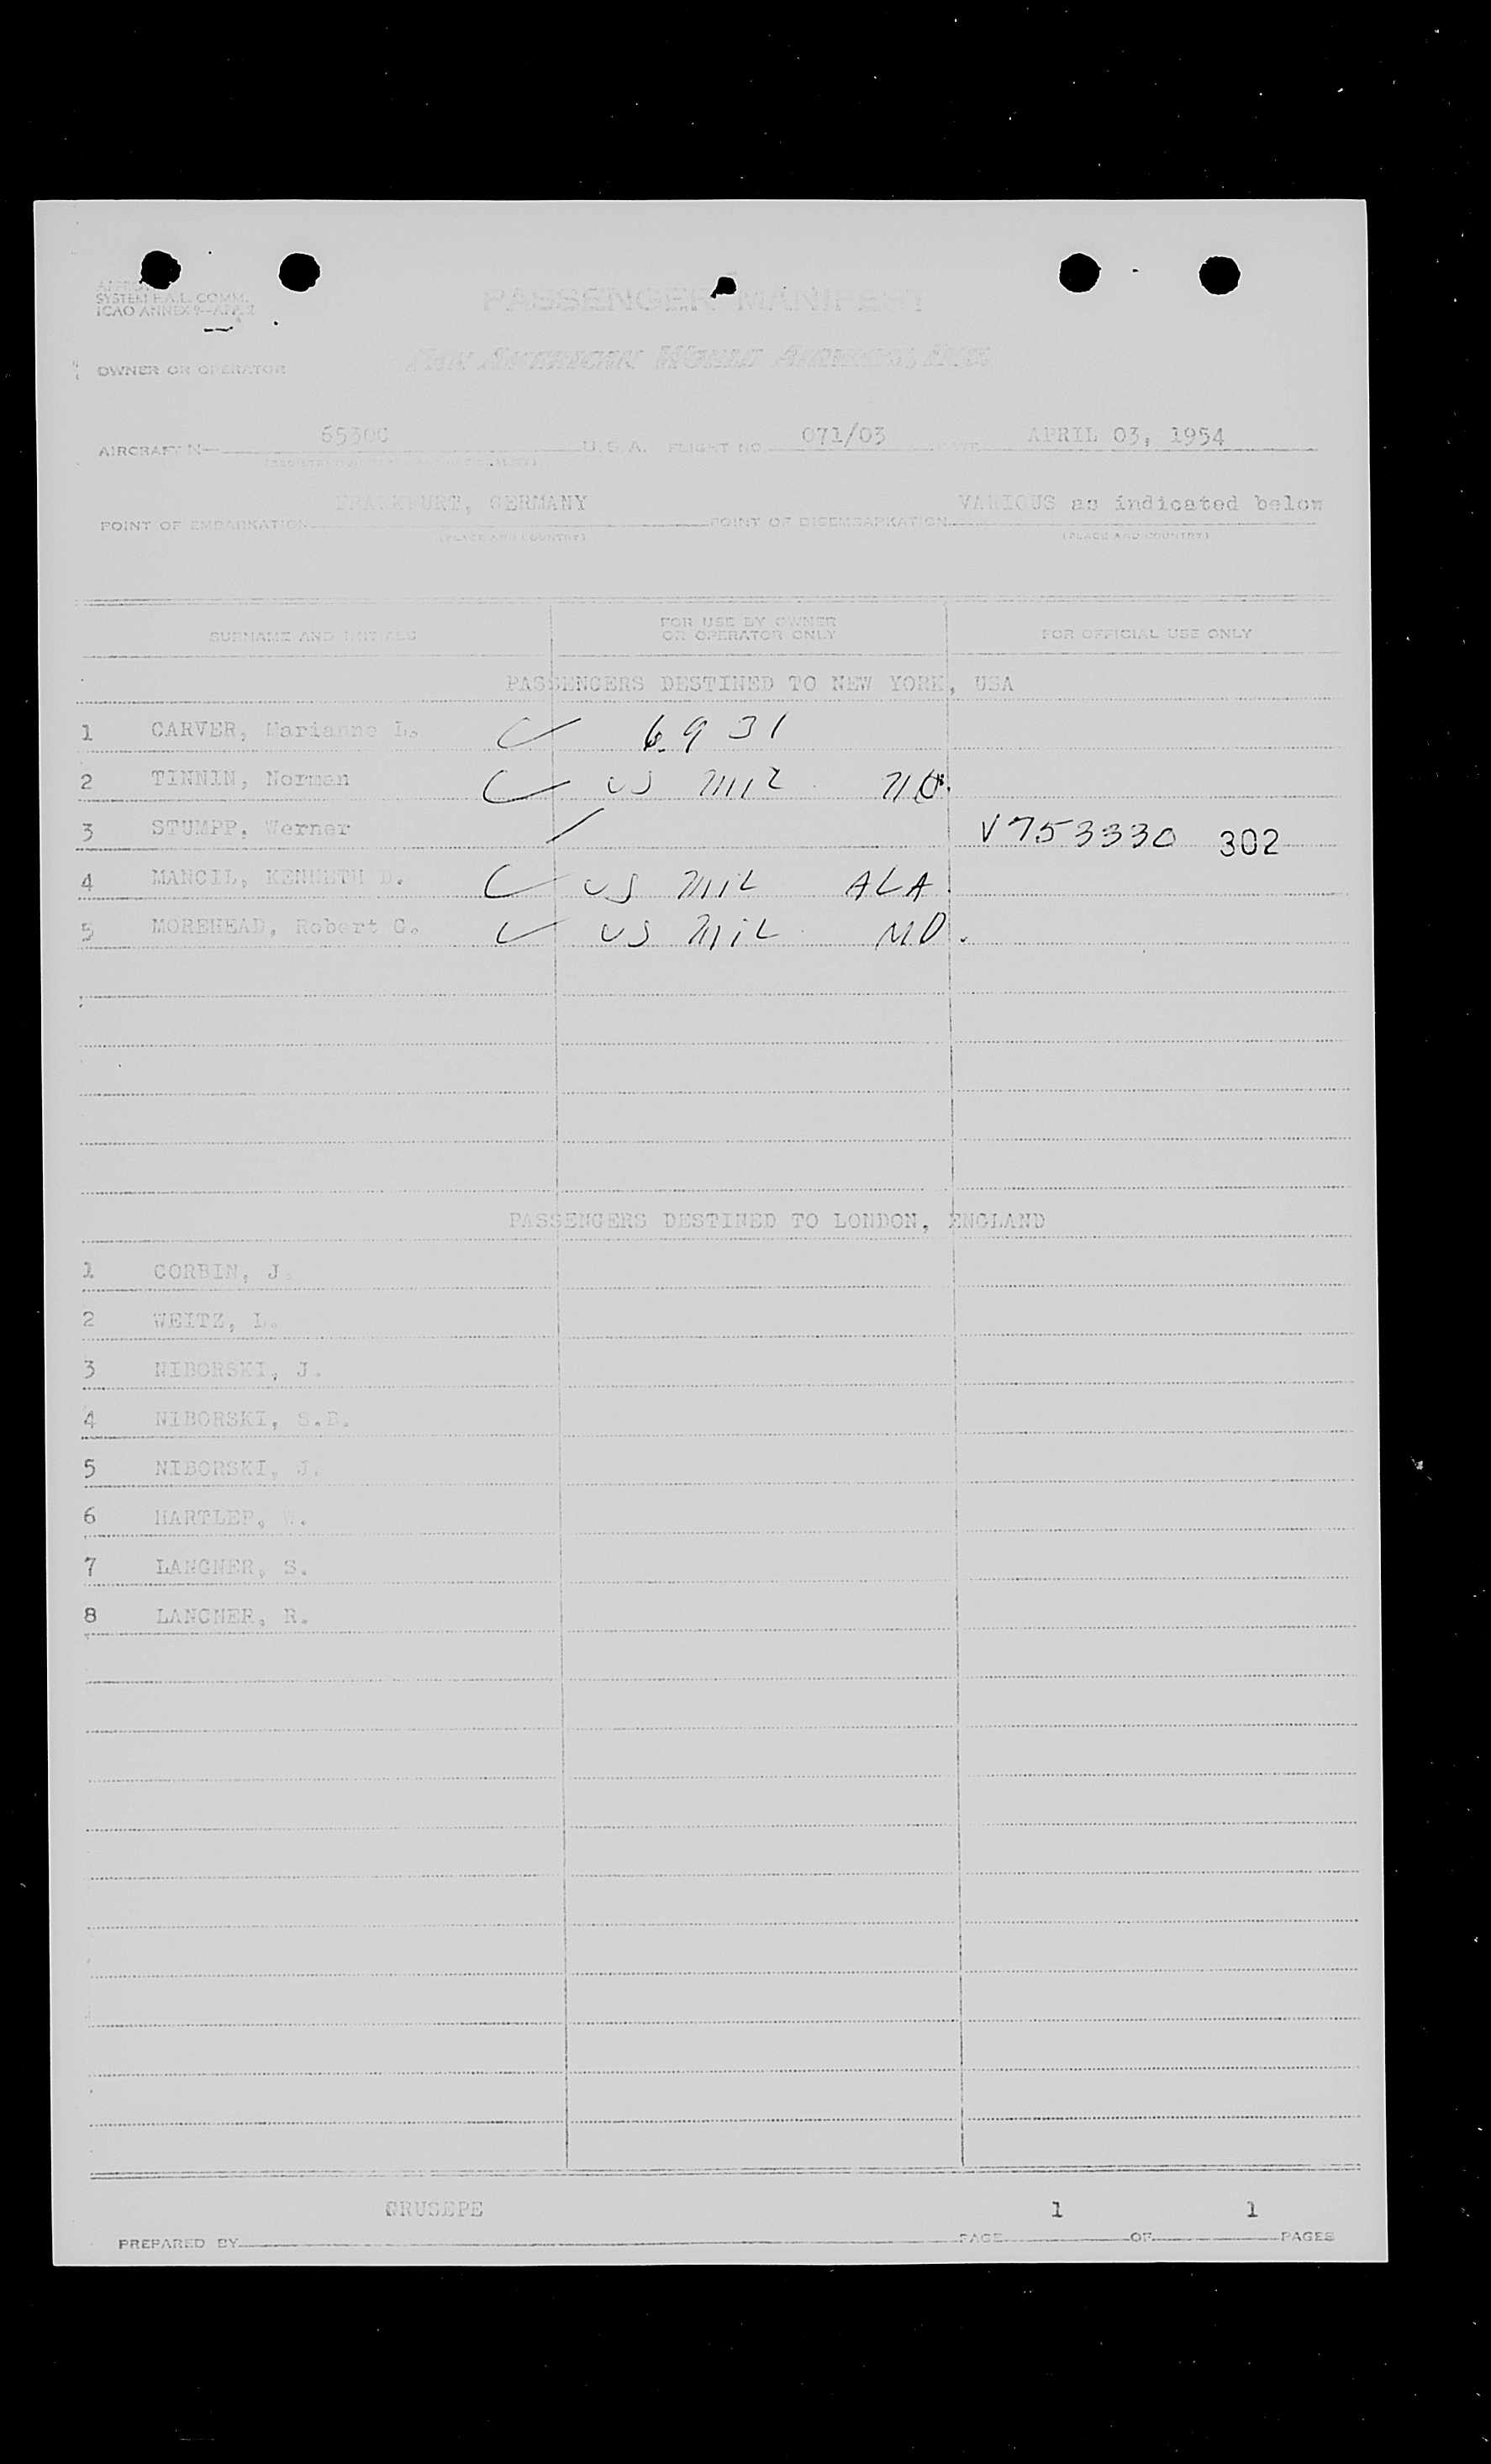 SYSTEM F.A.L. COMM.
ICAO ANNEX 9—APP. 2
PASSENGER MANIFEST
OWNER OR OPERATOR PAN AMERICAN WORLD AIRWAYS, INC.
AIRCRAFT N— 6530C U.S.A. FLIGHT NO. 071/03 DATE APRIL 03, 1954
POINT OF EMBARKATION FRANKFURT, GERMANY POINT OF DISEMBARKATION VARIOUS as indicated below
(PLACE AND COUNTRY) (PLACE AND COUNTRY)
SURNAME AND INITIALS FOR USE BY OWNER OR OPERATOR ONLY FOR OFFICIAL USE ONLY
PASSENGERS DESTINED TO NEW YORK, USA
1 CARVER, Marianne L. 6931
2 TINNIN, Norman US Mil
3 STUMPP, Werner V753330 302
4 MANCIL, KENNETH D. US Mil ALA.
5 MOREHEAD, Robert G. US Mil MD.
PASSENGERS DESTINED TO LONDON, ENGLAND
1 CORBIN, J.
2 WEITZ, L.
3 NIBORSKI, J.
4 NIBORSKI, S.B.
5 NIBORSKI, J.
6 HARTLEP, W.
7 LANGNER, S.
8 LANGNER, R.
PREPARED BY GRUSEPE PAGE 1 OF 1 PAGES